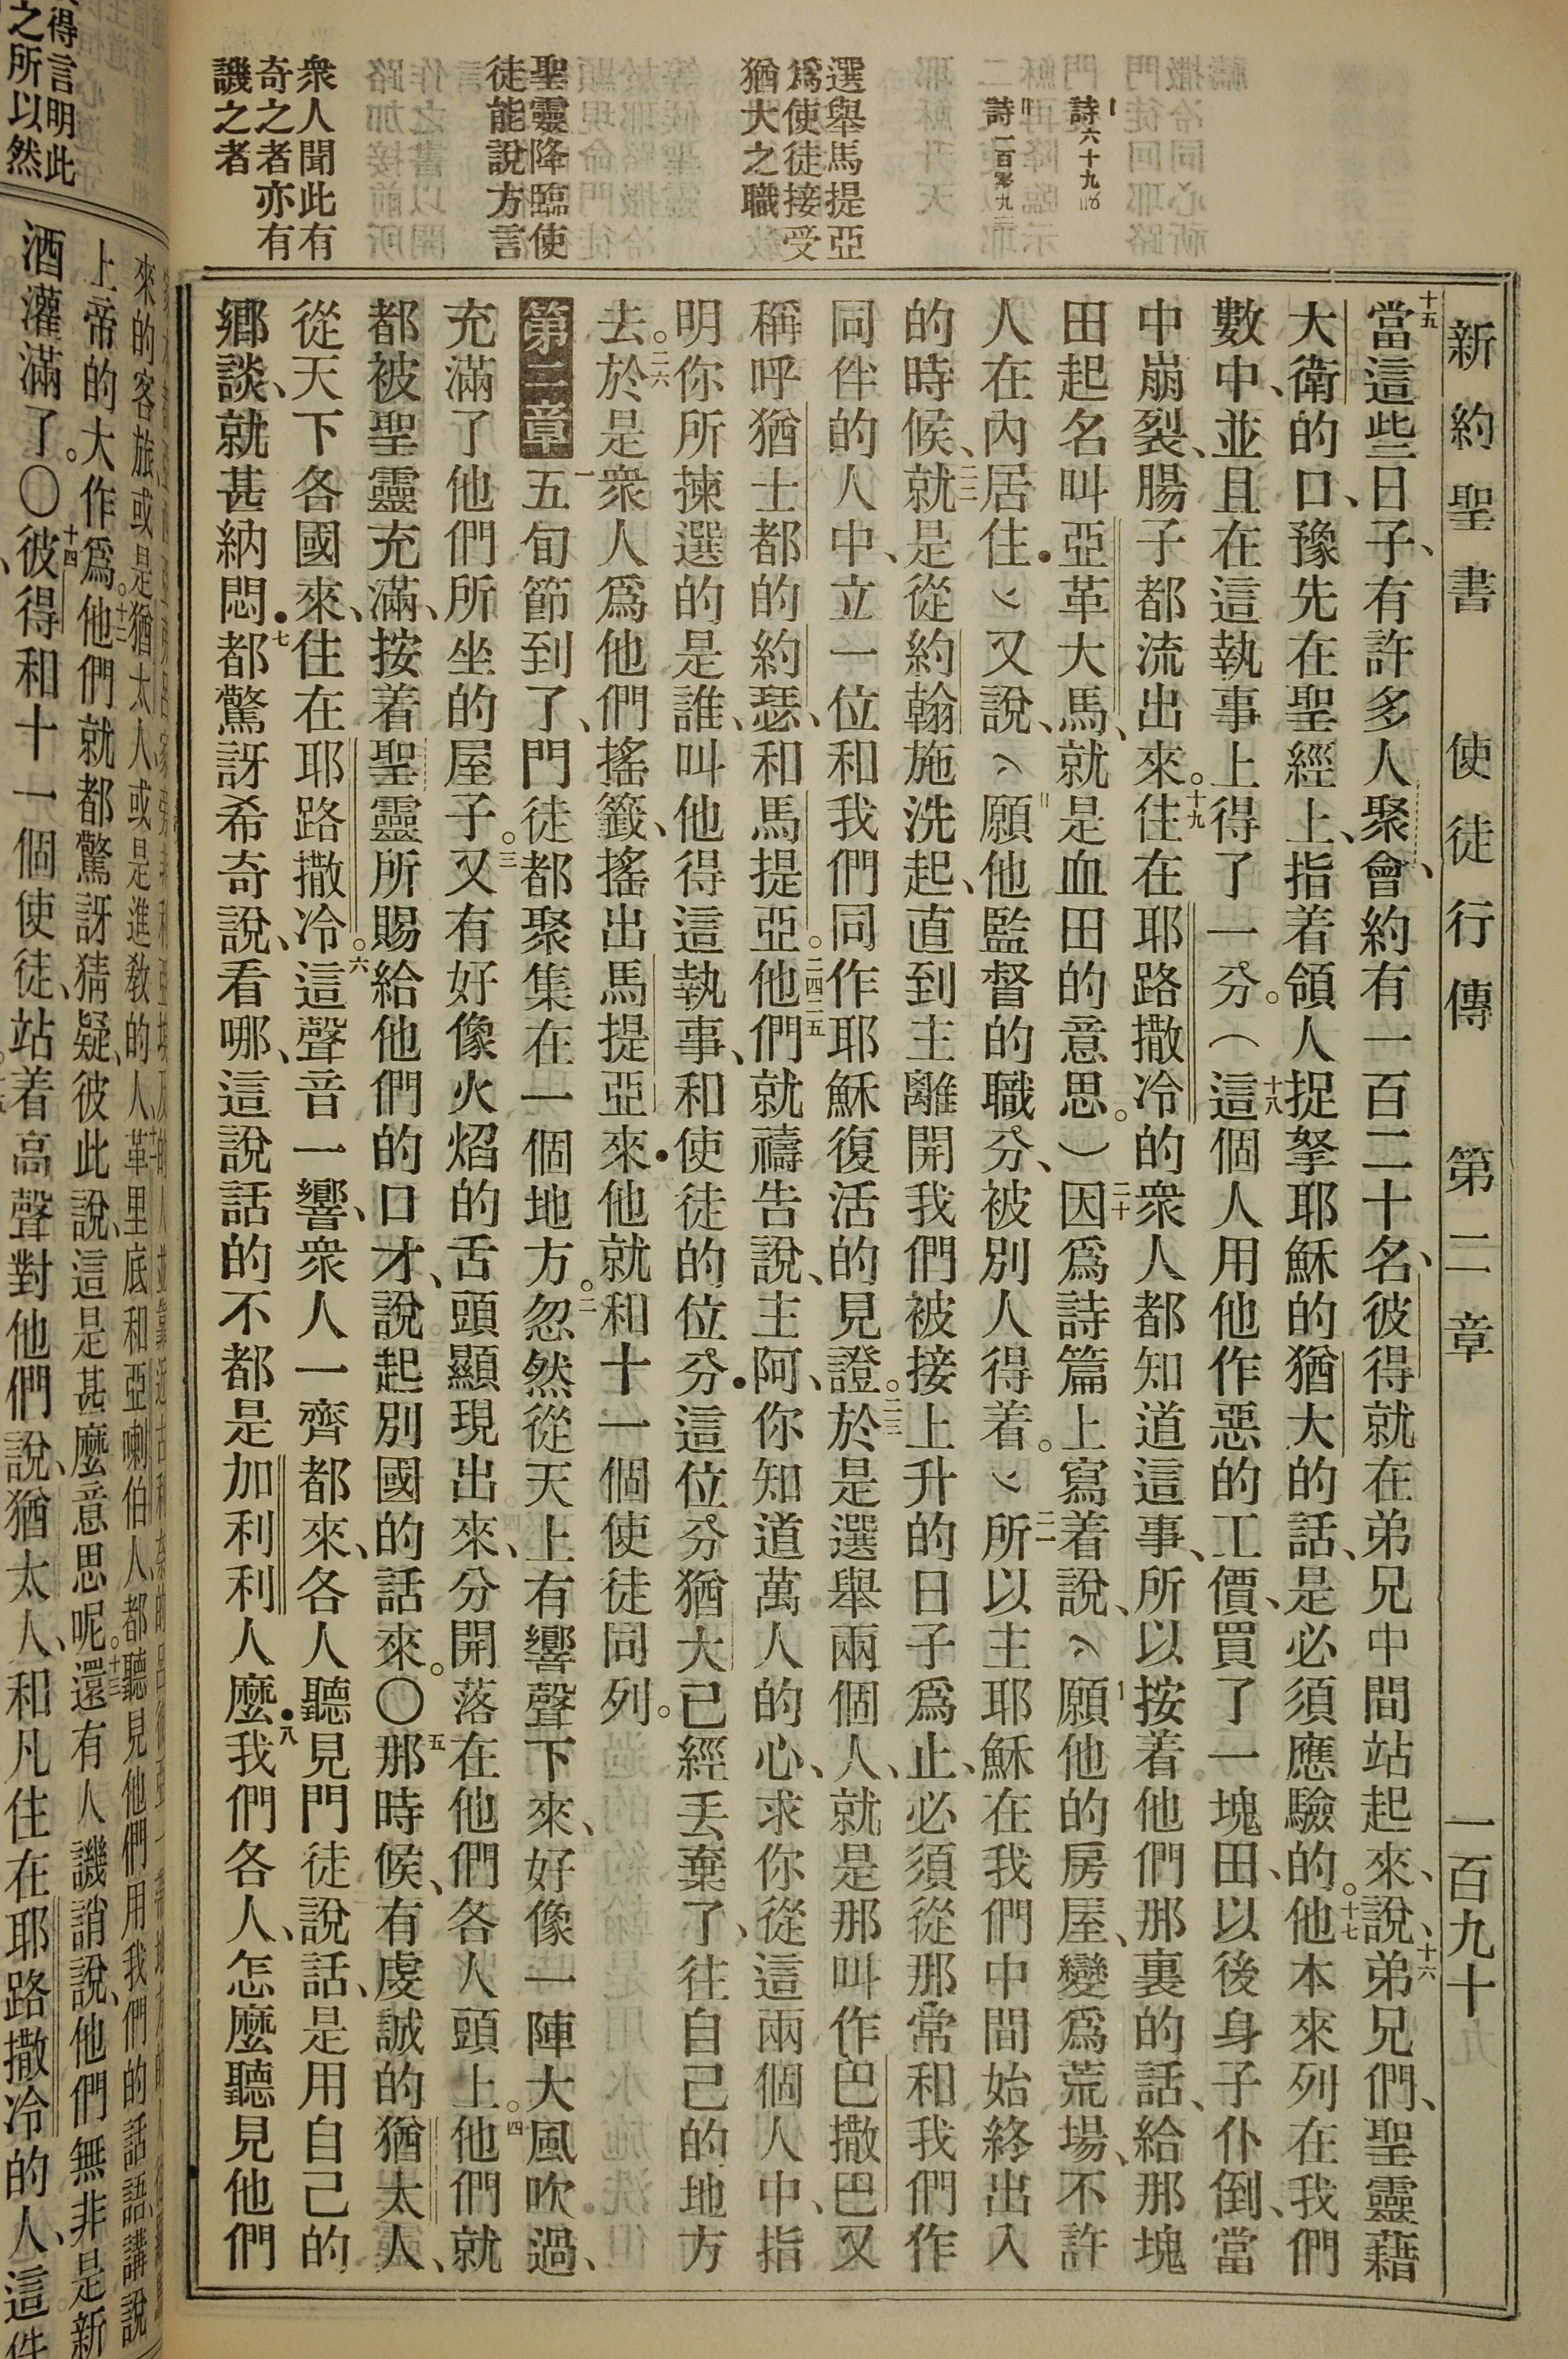 新約聖書　使徒行傳　第二章　一百九十
詩六十九
詩一百零九
選舉馬提亞
爲使徒接受
猶大之職
聖靈降臨使
徒能說方言
衆人聞此有
奇之者亦有
譏之者
十五當這些日子、有許多人聚會、約有一百二十名、彼得就在弟兄中間站起來、說、十六弟兄們、聖靈藉
大衛的口、豫先在聖經上、指着領人捉拏耶穌的猶大的話、是必須應驗的。十七他本來列在我們
數中、並且在這執事上得了一分。（十八這個人用他作惡的工價、買了一塊田、以後身子仆倒、當
中崩裂、腸子都流出來。十九住在耶路撒冷的衆人都知道這事、所以按着他們那裏的話、給那塊
田起名叫亞革大馬、就是血田的意思。）二十因爲詩篇上寫着說、願他的房屋、變爲荒場、不許
人在內居住．又說、願他監督的職分、被別人得着。二一所以主耶穌在我們中間始終出入
的時候、二二就是從約翰施洗起、直到主離開我們被接上升的日子爲止、必須從那常和我們作
同伴的人中、立一位和我們同作耶穌復活的見證。二三於是選舉兩個人、就是那叫作巴撒巴、又
稱呼猶士都的約瑟、和馬提亞。二四二五他們就禱告說、主阿、你知道萬人的心、求你從這兩個人中、指
明你所揀選的是誰、叫他得這執事、和使徒的位分．這位分猶大已經丟棄了、往自己的地方
去。二六於是衆人爲他們搖籤、搖出馬提亞來．他就和十一個使徒同列。
第二章　一五旬節到了、門徒都聚集在一個地方。二忽然從天上有響聲下來、好像一陣大風吹過、
充滿了他們所坐的屋子。三又有好像火焰的舌頭顯現出來、分開落在他們各人頭上。四他們就
都被聖靈充滿、按着聖靈所賜給他們的口才、說起別國的話來。〇五那時候、有虔誠的猶太人、
從天下各國來、住在耶路撒冷。六這聲音一響、衆人一齊都來、各人聽見門徒說話、是用自己的
鄕談、就甚納悶．七都驚訝希奇說、看哪、這說話的不都是加利利人麼．八我們各人、怎麼聽見他們
得言明此
之所以然
來的客旅或是猶太人或是進敎的人、革里底和亞喇伯人、都聽見他們用我們的話語、講說
上帝的大作爲。十二他們就都驚訝猜疑、彼此說、這是甚麼意思呢。十三還有人譏誚說、他們無非是新
酒灌滿了。〇十四彼得和十一個使徒、站着高聲對他們說、猶太人、和凡住在耶路撒冷的人、這件